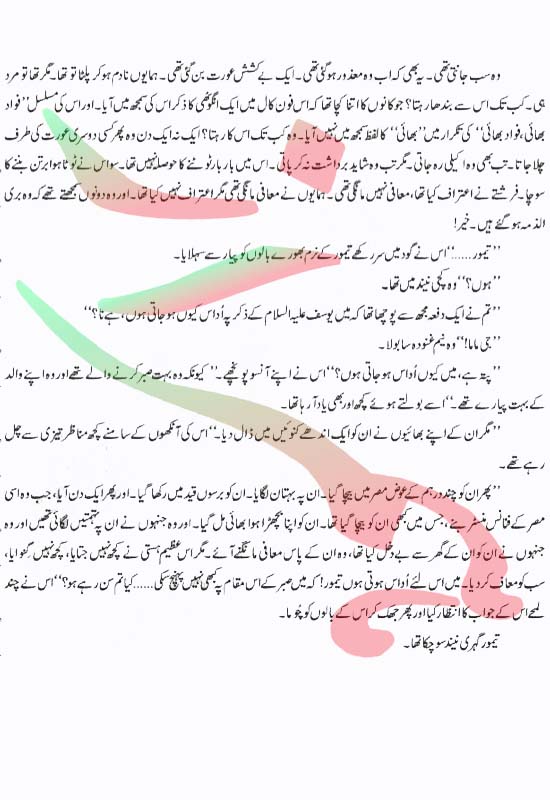 وہ سب جانتی تھی۔ یہ بھی کہ اب وہ معذور ہو گئی تھی۔ ایک بے کشش عورت بن گئی تھی۔ ہمایوں نادم ہو کر پلٹا تو تھا۔ مگر تھا تو مرد
ہی۔ کب تک اس سے بندھا رہتا؟ جو کانوں کا اتنا کچا تھا کہ اس فون کال میں ایک انگوٹھی کا ذکر اس کی سمجھ میں آیا۔ اور اس کی مسلسل ’’فواد
بھائی، فواد بھائی‘‘ کی تکرار میں ’’بھائی‘‘ کا لفظ سمجھ میں نہیں آیا۔ وہ کب تک اس کا رہتا؟ ایک نہ ایک دن وہ پھر کسی دوسری عورت کی طرف
چلا جاتا۔ تب بھی وہ اکیلی رہ جاتی۔ مگر تب وہ شاید برداشت نہ کر پاتی۔ اس میں بار بار ٹوٹنے کا حوصلہ نہیں تھا۔ سو اس نے ٹوٹا ہوا برتن بننے کا
سوچا۔ فرشتے نے اعتراف کیا تھا، معافی نہیں مانگی تھی۔ ہمایوں نے معافی مانگی تھی مگر اعتراف نہیں کیا تھا۔ اور وہ دونوں سمجھتے تھے کہ وہ بری
الذمہ ہو گئے ہیں۔ خیر!
’’تیمور……‘‘ اس نے گود میں سر رکھے تیمور کے نرم بھورے بالوں کو پیار سے سہلایا۔
’’ہوں؟‘‘ وہ کچی نیند میں تھا۔
’’تم نے ایک دفعہ مجھ سے پوچھا تھا کہ میں یوسف علیہ السلام کے ذکر پہ اُداس کیوں ہو جاتی ہوں، ہے نا؟‘‘
’’جی ماما!‘‘ وہ نیم غنودہ سا بولا۔
’’پتہ ہے، میں کیوں اُداس ہو جاتی ہوں؟‘‘ اس نے اپنے آنسو پونچھے۔ ’’کیونکہ وہ بہت صبر کرنے والے تھے اور وہ اپنے والد
کے بہت پیارے تھے۔‘‘ اسے بولتے ہوئے کچھ اور بھی یاد آ رہا تھا۔
’’مگر ان کے اپنے بھائیوں نے ان کو ایک اندھے کنوئیں میں ڈال دیا۔‘‘ اس کی آنکھوں کے سامنے کچھ مناظر تیزی سے چل
رہے تھے۔
’’پھر ان کو چند درہم کے عوض مصر میں بیچا گیا۔ ان پہ بہتان لگایا۔ ان کو برسوں قید میں رکھا گیا۔ اور پھر ایک دن آیا، جب وہ اسی
مصر کے فنانس منسٹر بنے، جس میں کبھی ان کو بیچا گیا تھا۔ ان کو اپنا بچھڑا ہوا بھائی مل گیا۔ اور وہ جنہوں نے ان پہ تہمتیں لگائی تھیں اور وہ
جنہوں نے ان کو ان کے گھر سے بے دخل کیا تھا، وہ ان کے پاس معافی مانگنے آئے۔ مگر اس عظیم ہستی نے کچھ نہیں جتایا، کچھ نہیں گنوایا،
سب کو معاف کر دیا۔ میں اس لئے اُداس ہوتی ہوں تیمور! کہ میں صبر کے اس مقام پہ کبھی نہیں پہنچ سکی……کیا تم سن رہے ہو؟‘‘ اس نے چند
لمحے اس کے جواب کا انتظار کیا اور پھر جھک کر اس کے بالوں کو چُوما۔
تیمور گہری نیند سو چکا تھا۔